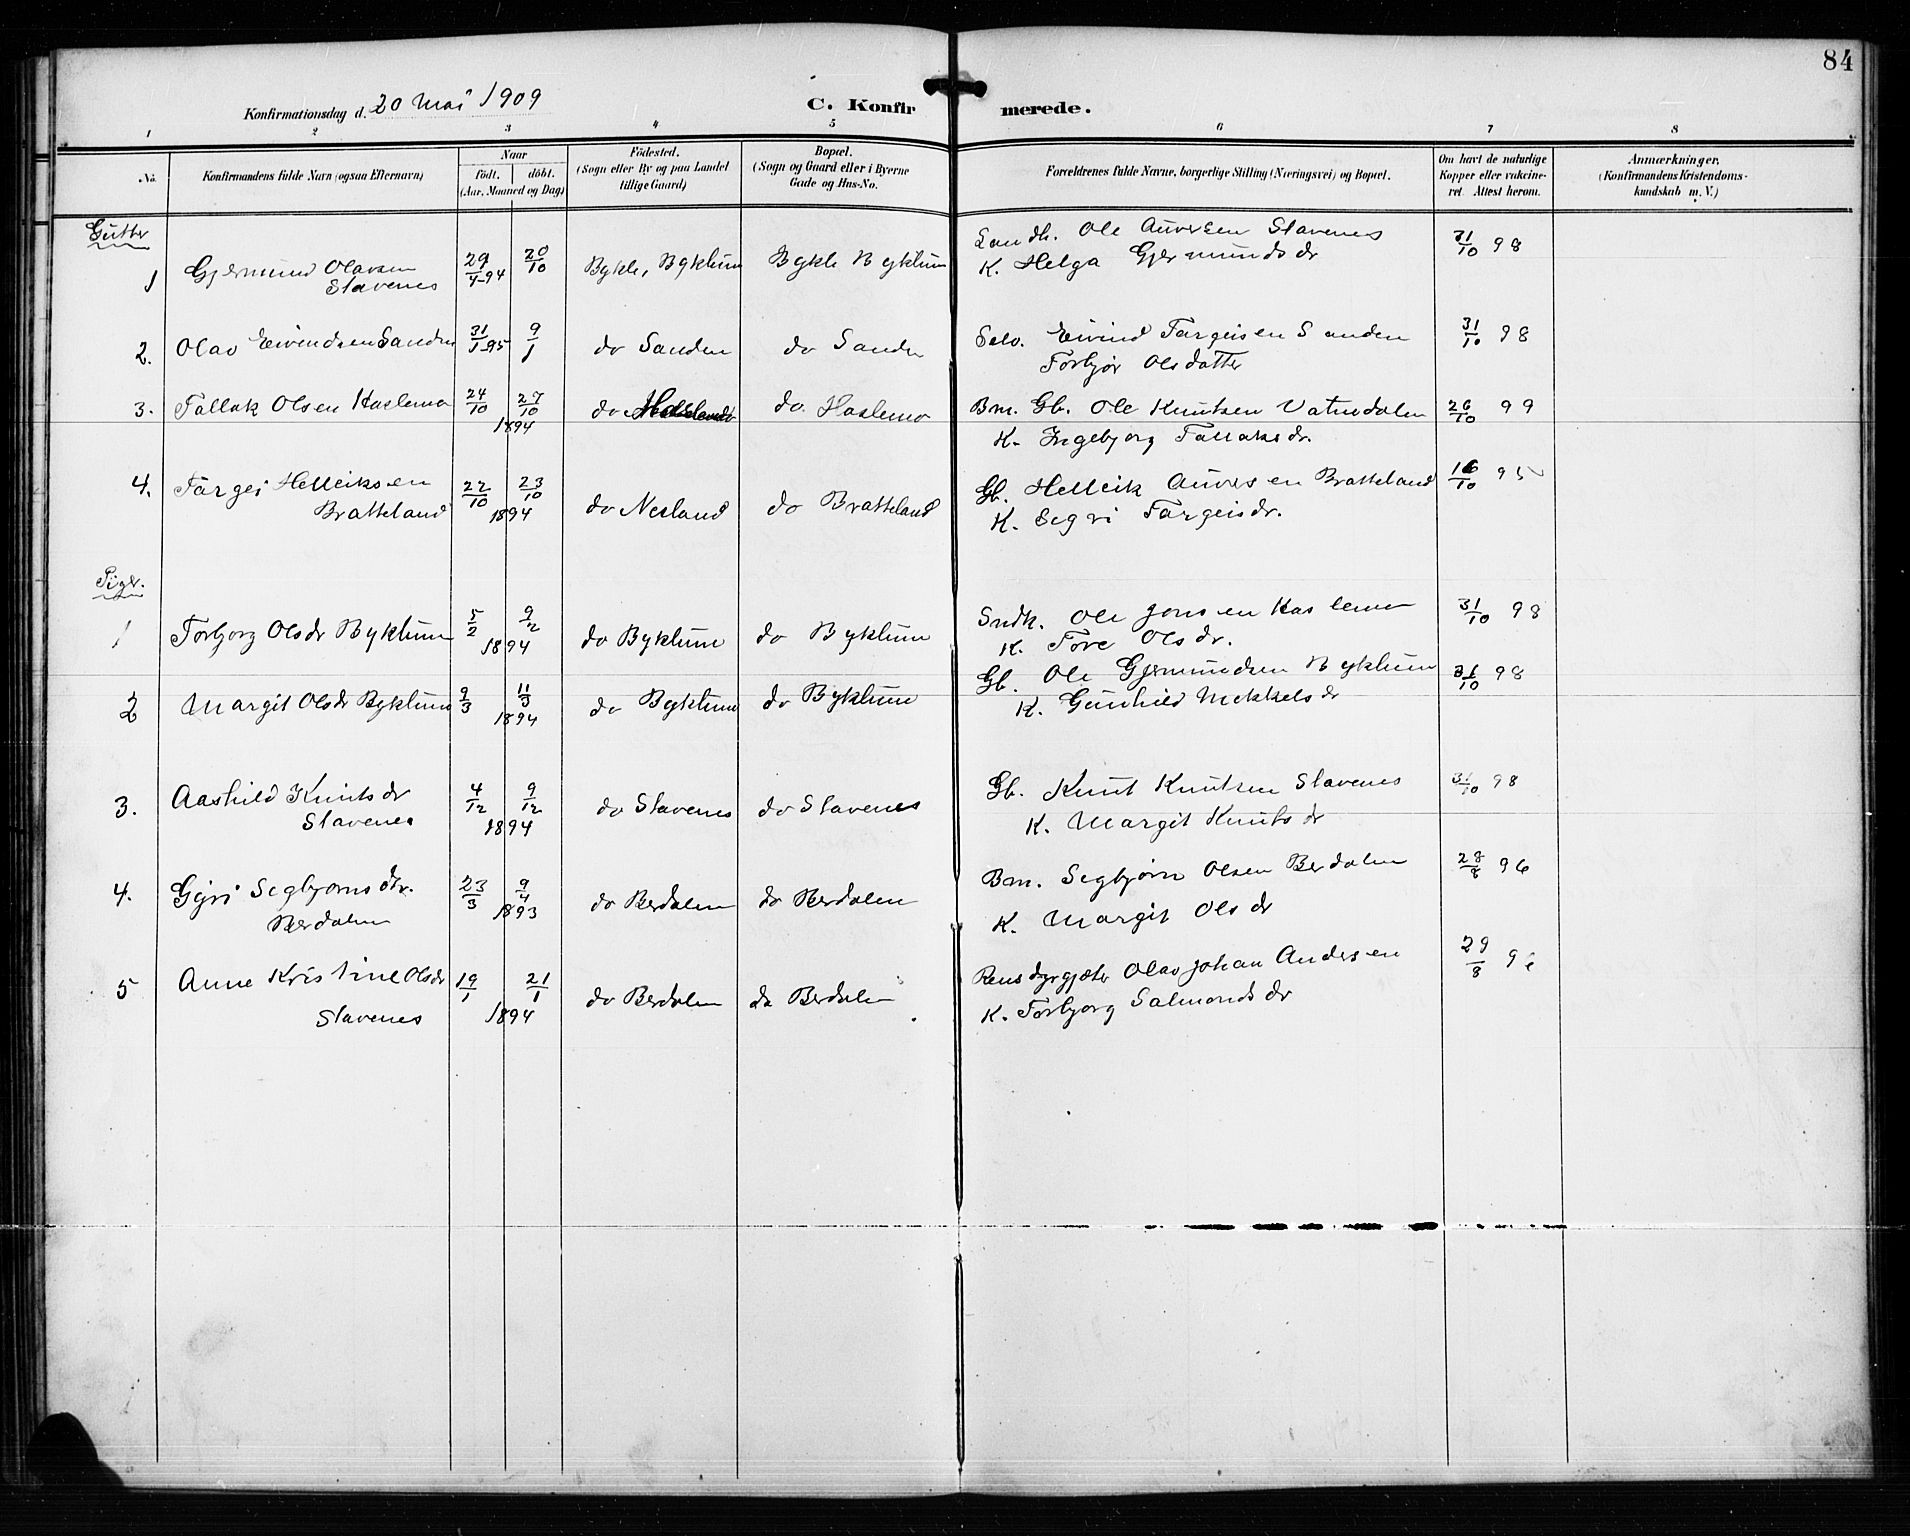 84
Konfirmationsdag d. 20 Mai 1909
C. Konfirmerede.
1 2 3 4 5 6 7 8
No.
Konfirmandens fulde Navn (ogsaa Efternavn)
Naar
födt. döbt.
(Aar, Maaned og Dag)
Födested.
(Sogn eller By og paa Landet
tillige Gaard)
Bopæl.
(Sogn og Gaard eller i Byerne
Gade og Hus-No.
Forældrenes fulde Navne, borgerlige Stilling (Næringsvei) og Bopæl.
Om havt de naturlige
Kopper eller vakcine-
ret. Attest herom.
Anmærkninger.
(Konfirmandens Kristendoms-
kundskab m. V.)
Gutter
1 Gjermund Olavsen 29/4-94 20/10 Bykle, Byklum Bykle Byklum Landh. Ole Auversen Stavenes 31/10 98
Stavenes K. Helga Gjermundsdr
2. Olav Eivindsen Sanden 31/1-95 9/1 do Sanden do Sanden Selv. Eivind Targeisen Sanden 31/10 98
Torbjør Olsdatter
3. Tallak Olsen Haslemo 24/10 27/10 do do. Haslemo Bm. Gb. Ole Knutsen Vatnedalen 26/10 99
1894 K. Ingebjorg Tallaksdr.
4. Targei Helleiksen 22/10 23/10 do Nesland do Bratteland Gb. Helleik Auversen Bratteland 16/10 95
Bratteland 1894 K. Segri Targeisdr.
Piger.
1 Torbjorg Olsdr Byklum 5/2 9/12 do Byklum do Byklum Sndk. Ole Jonsen Haslemo 31/10 98
1894 K. Tore Olsdr.
2 Margit Olsdr Byklum 9/3 11/3 do Byklum do Byklum Gb. Ole Gjermundsen Byklum 31/10 98
1894 K. Gunhild Mikkelsdr
3. Aashild Knutsdr 4/12 9/12 do Stavenes do Stavenes Gb. Knut Knutsen Stavenes 31/10 98
Stavenes 1894 K. Margit Knutsdr
4. Gyri Segbjornsdtr. 23/3 9/4 do Berdalen do Berdalen Bm. Segbjørn Olsen Berdalen 28/8 96
Berdalen 1893 K. Margit Olsdr
5 Anne Kristine Olsdr 19/1 21/1 do Berdalen do Berdalen Rensdyrgjæter Olav Johan Andersen 29/8
Stavenes 1894 K. Torbjorg Salmondsdr